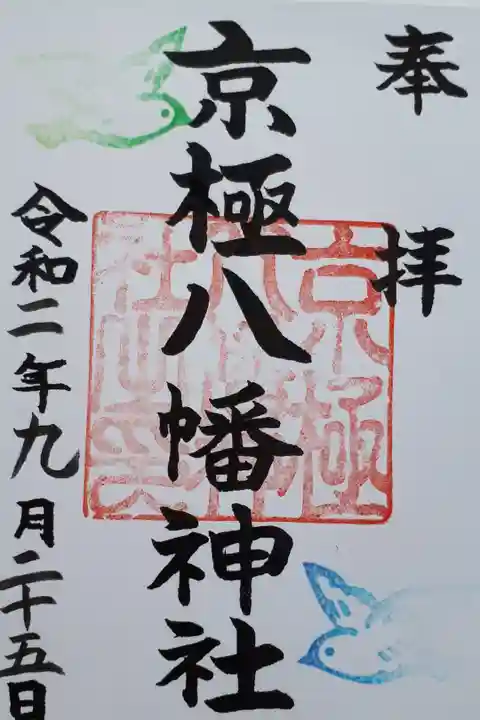 奉拝
京極八幡神社
令和二年九月二十五日